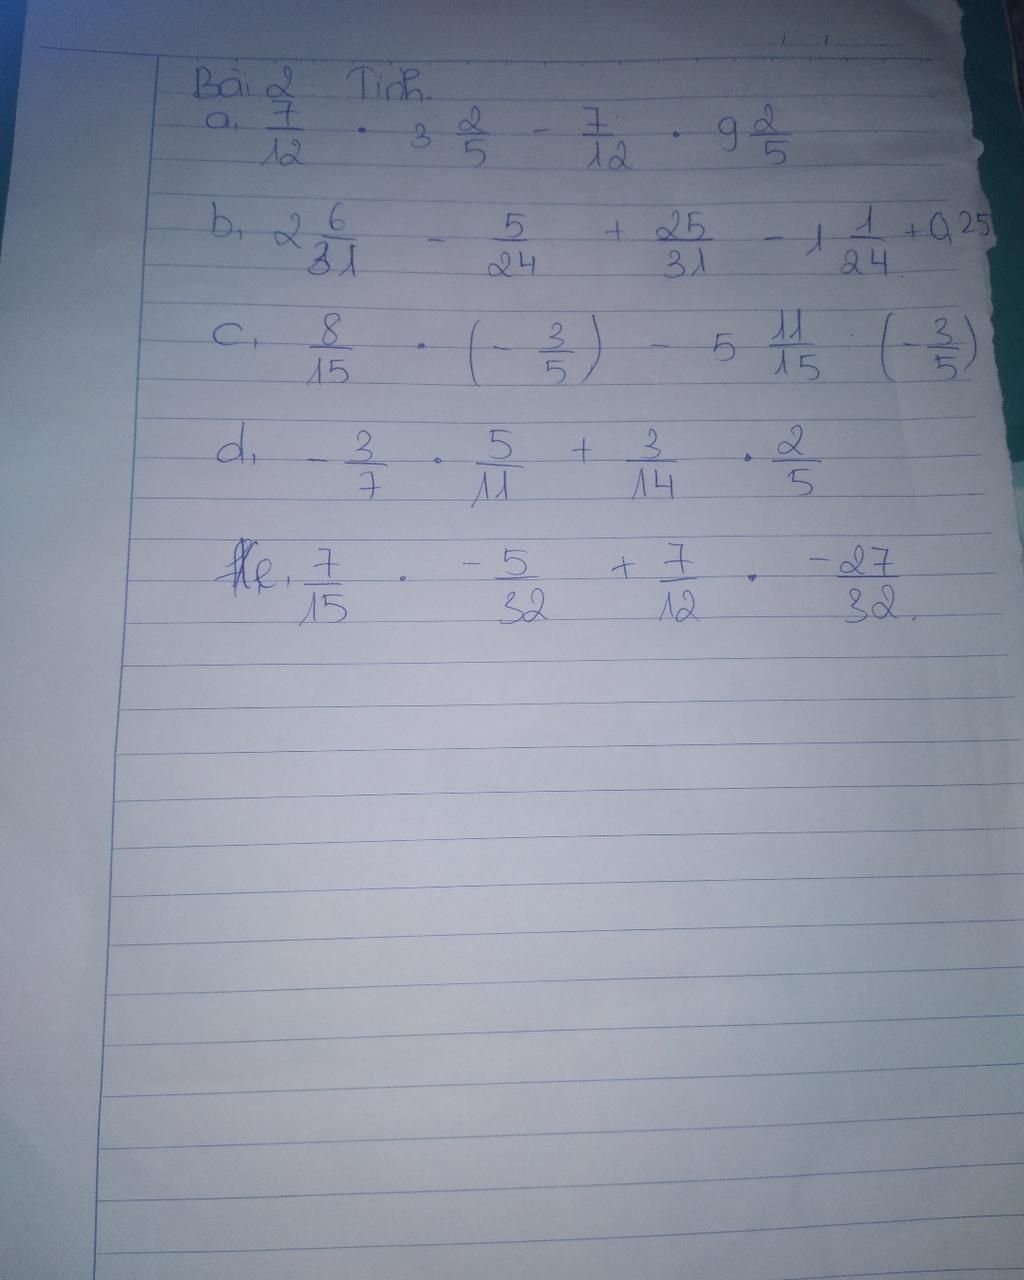 Bài 2 Tính.
a, 7/12 . 3 2/5 - 7/12 . 9 2/5
b, 2 6/31 - 5/24 + 25/31 - 1 1/24 + 0,25
c, 8/15 . (- 3/5) - 5 11/15 . (- 3/5)
d, - 3/7 . 5/11 + 3/14 . 2/5
e, 7/15 . -5/32 + 7/12 . -27/32.